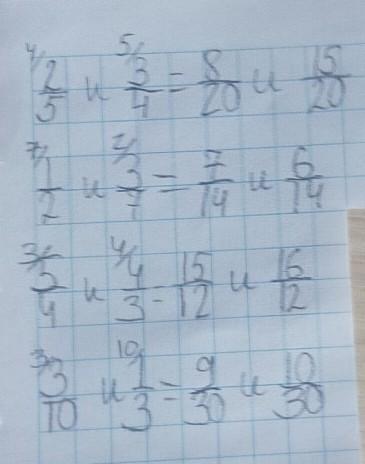 4/ 2/5 и 5/ 3/4 = 8/20 и 15/20
7/ 1/2 и 2/ 3/7 = 7/14 и 6/14
3/ 5/4 и 4/ 4/3 = 15/12 и 16/12
3/ 3/10 и 10/ 1/3 = 9/30 и 10/30